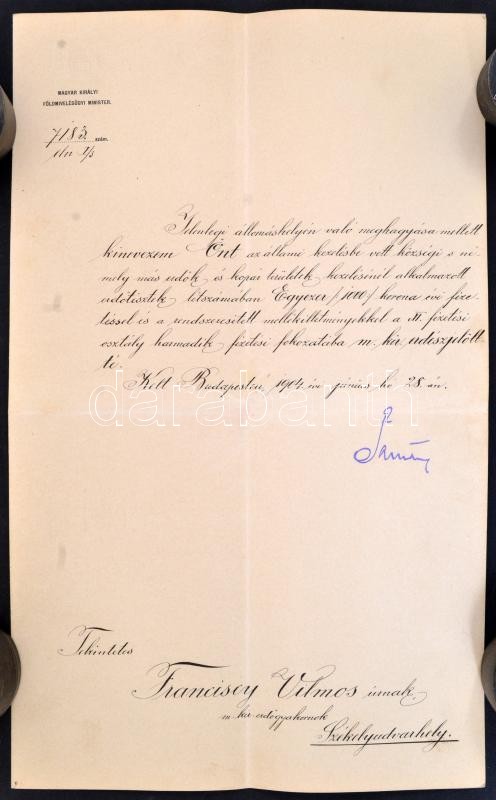 MAGYAR KIRÁLYI
FÖLDMIVELÉSÜGYI MINISTER.
7183 szám.
eln I/3
Jelenlegi állomáshelyén való meghagyása mellett
kinevezem Önt az állami kezelésbe vett községi s né-
mely más erdők és kopár területek kezelésénél alkalmazott
erdőtisztek létszámában Egyezer /1000/ korona évi fize-
téssel és a rendszeresitett mellékilletményekkel a XI. fizetési
osztály harmadik fizetési fokozatába m. kir. erdészjelölt-
té.
Kelt Budapesten, 1904. évi június hó 28.-án.
darabanth
Tekintetes
Franciscy Vilmos úrnak,
m. kir. erdőgyakornok
Székelyudvarhely.